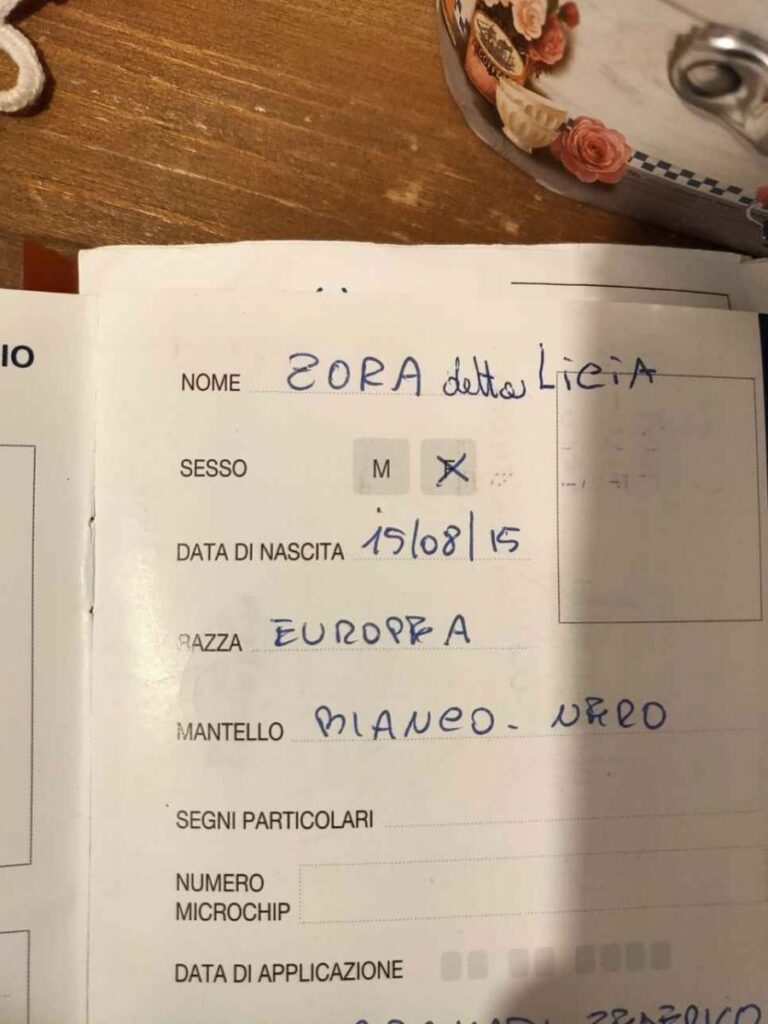 IO
NOME ZORA detta LiciA
SESSO M F
DATA DI NASCITA 15/08/15
RAZZA EUROPEA
MANTELLO BIANCO - NERO
SEGNI PARTICOLARI
NUMERO
MICROCHIP
DATA DI APPLICAZIONE
FEDERICO